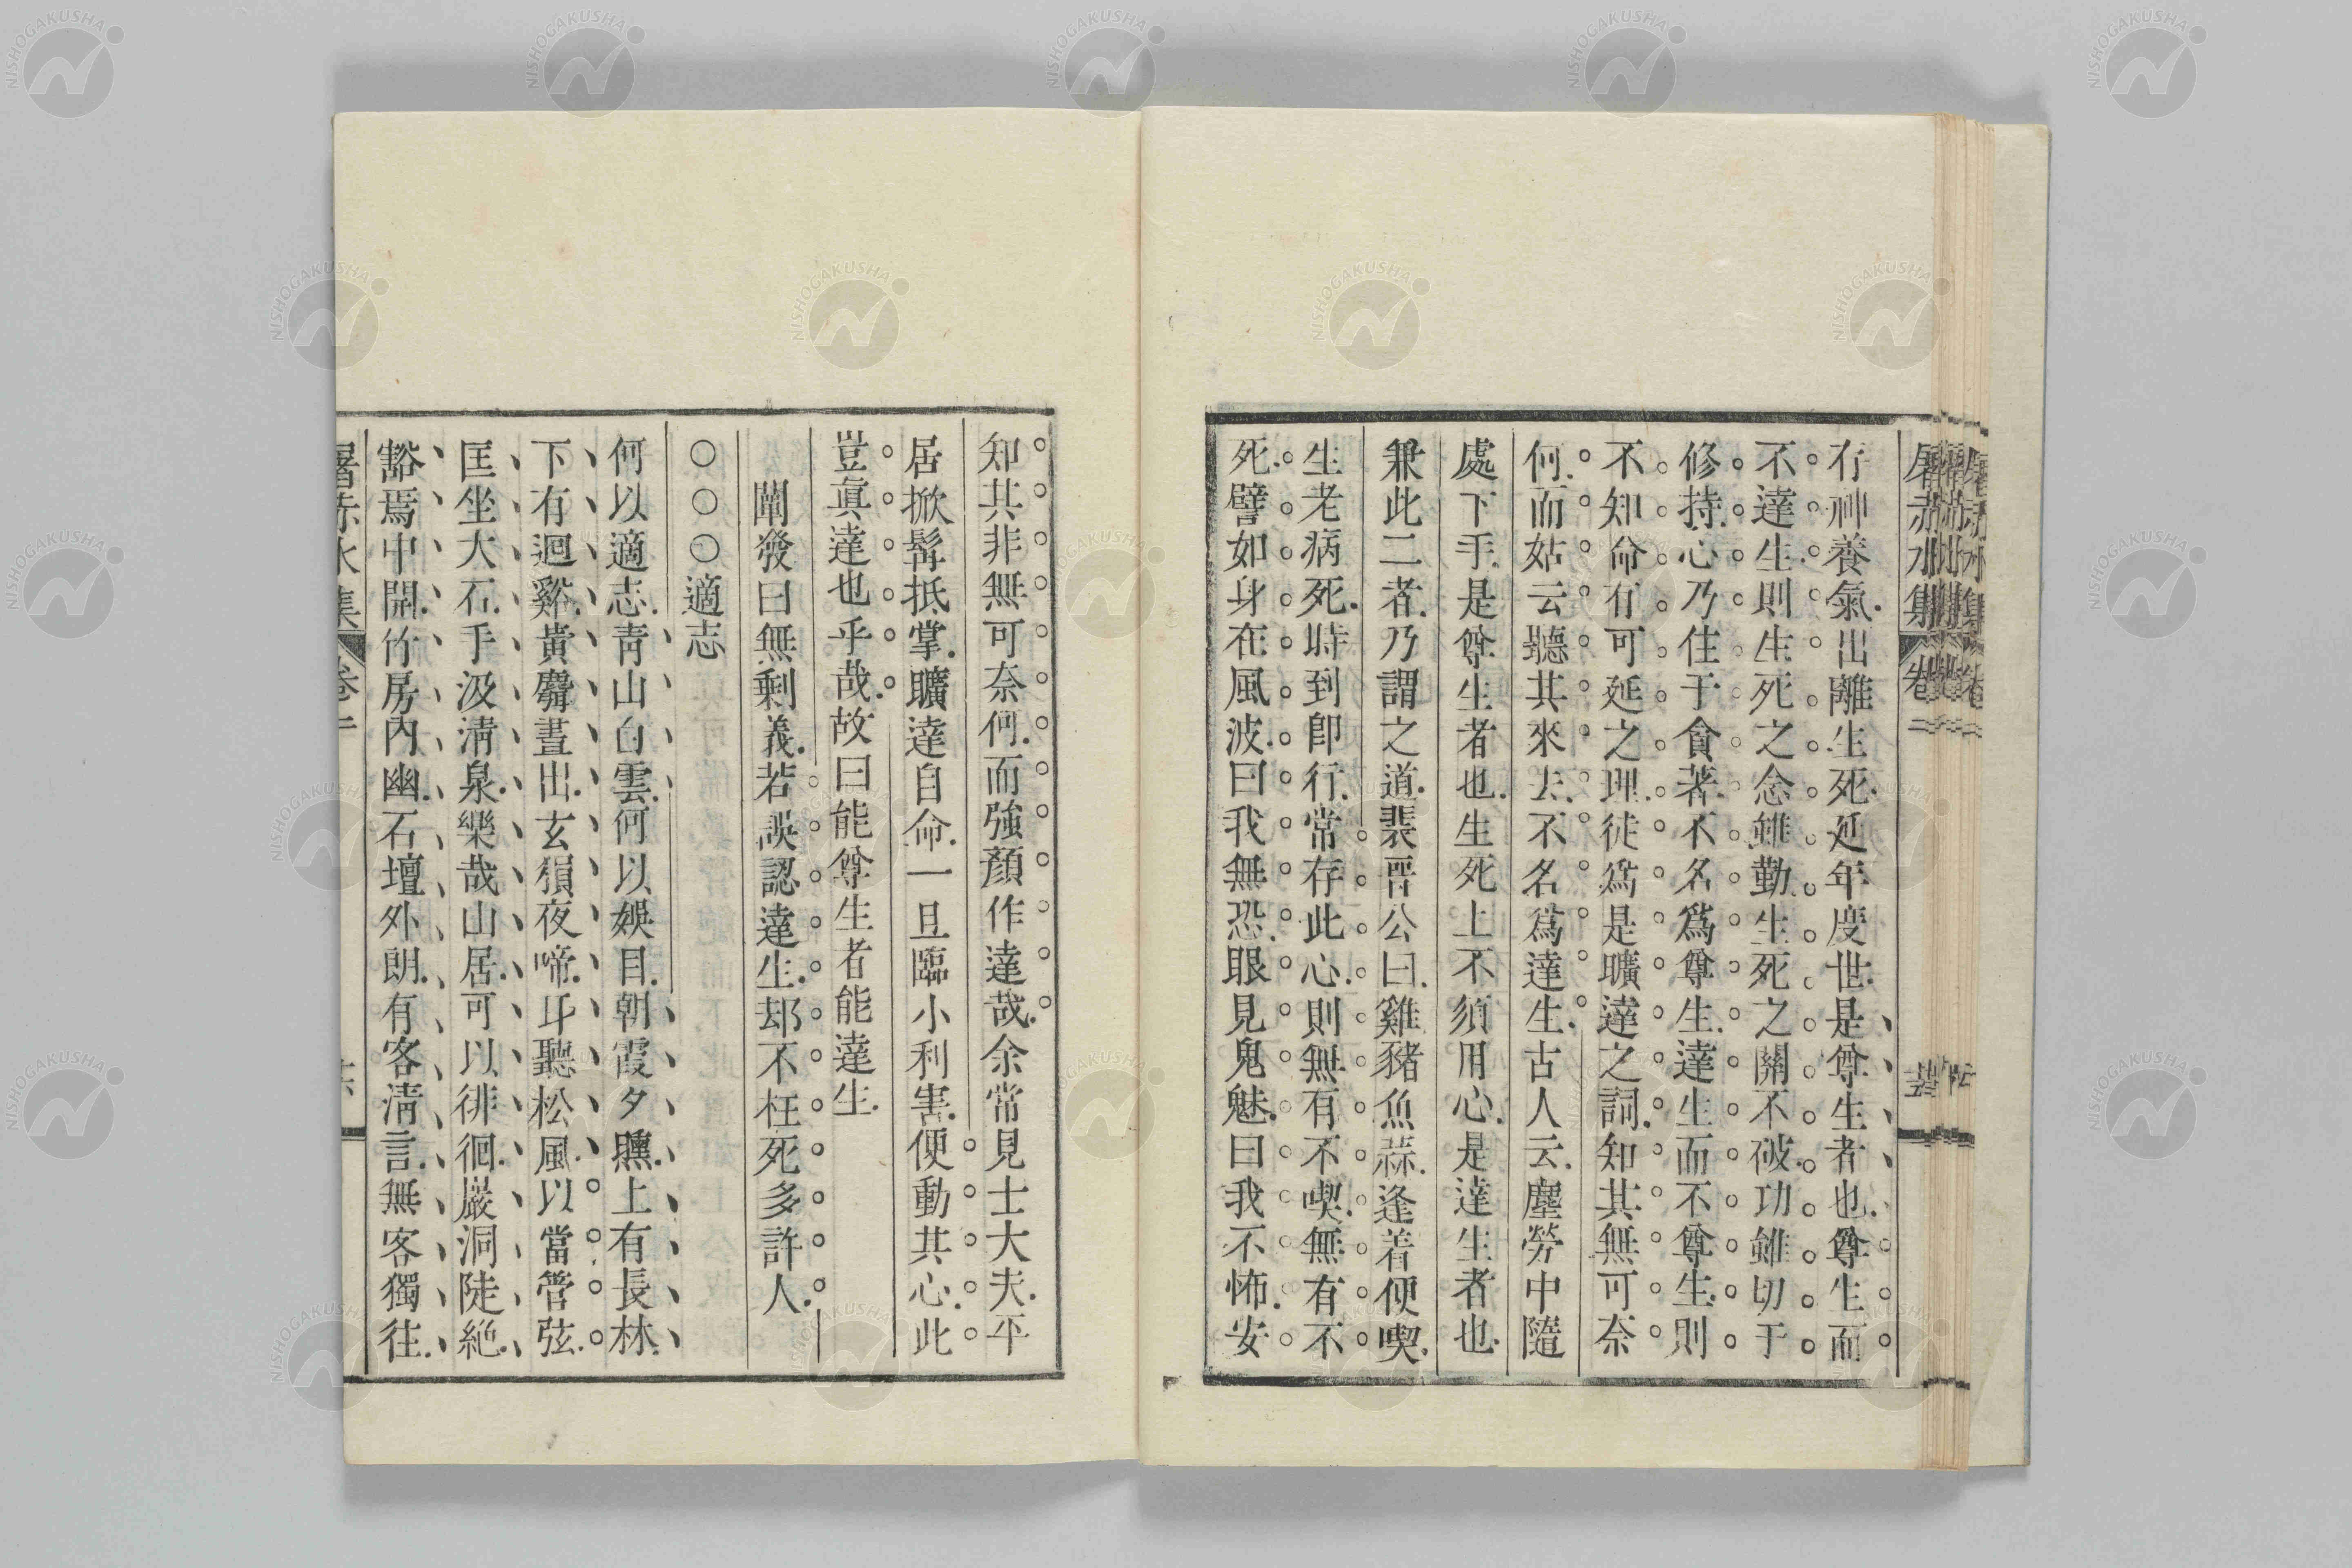 屠赤水集 卷二
存神養氣出離生死延年度世是尊生者也尊生而
不達生則生死之念雖勤生死之關不破功雖切于
修持心乃住于貪著不名爲尊生達生而不尊生則
不知命有可延之理徒爲是曠達之詞知其無可奈
何而姑云聽其來去不名爲達生古人云塵勞中隨
處下手是尊生者也生死上不須用心是達生者也
兼此二者乃謂之道裴晉公曰雞豬魚蒜逢着便喫
生老病死時到即行常存此心則無有不喫無有不
死譬如身在風波曰我無恐眼見鬼魅曰我不怖安
知其非無可奈何而強顏作達哉余常見士大夫平
居掀髯抵掌曠達自命一旦臨小利害便動其心此
豈眞達也乎哉故曰能尊生者能達生
闡發曰無剩義若誤認達生却不枉死多許人
○○○適志
何以適志青山白雲何以娛目朝霞夕曛上有長林
下有迴谿黃麏晝出玄猿夜啼耳聽松風以當管弦
匡坐大石手汲清泉樂哉山居可以徘徊巖洞陡絶
豁焉中開竹房內幽石壇外朗有客淸言無客獨往
屠赤水集 卷二 六
NISHOGAKUSHA